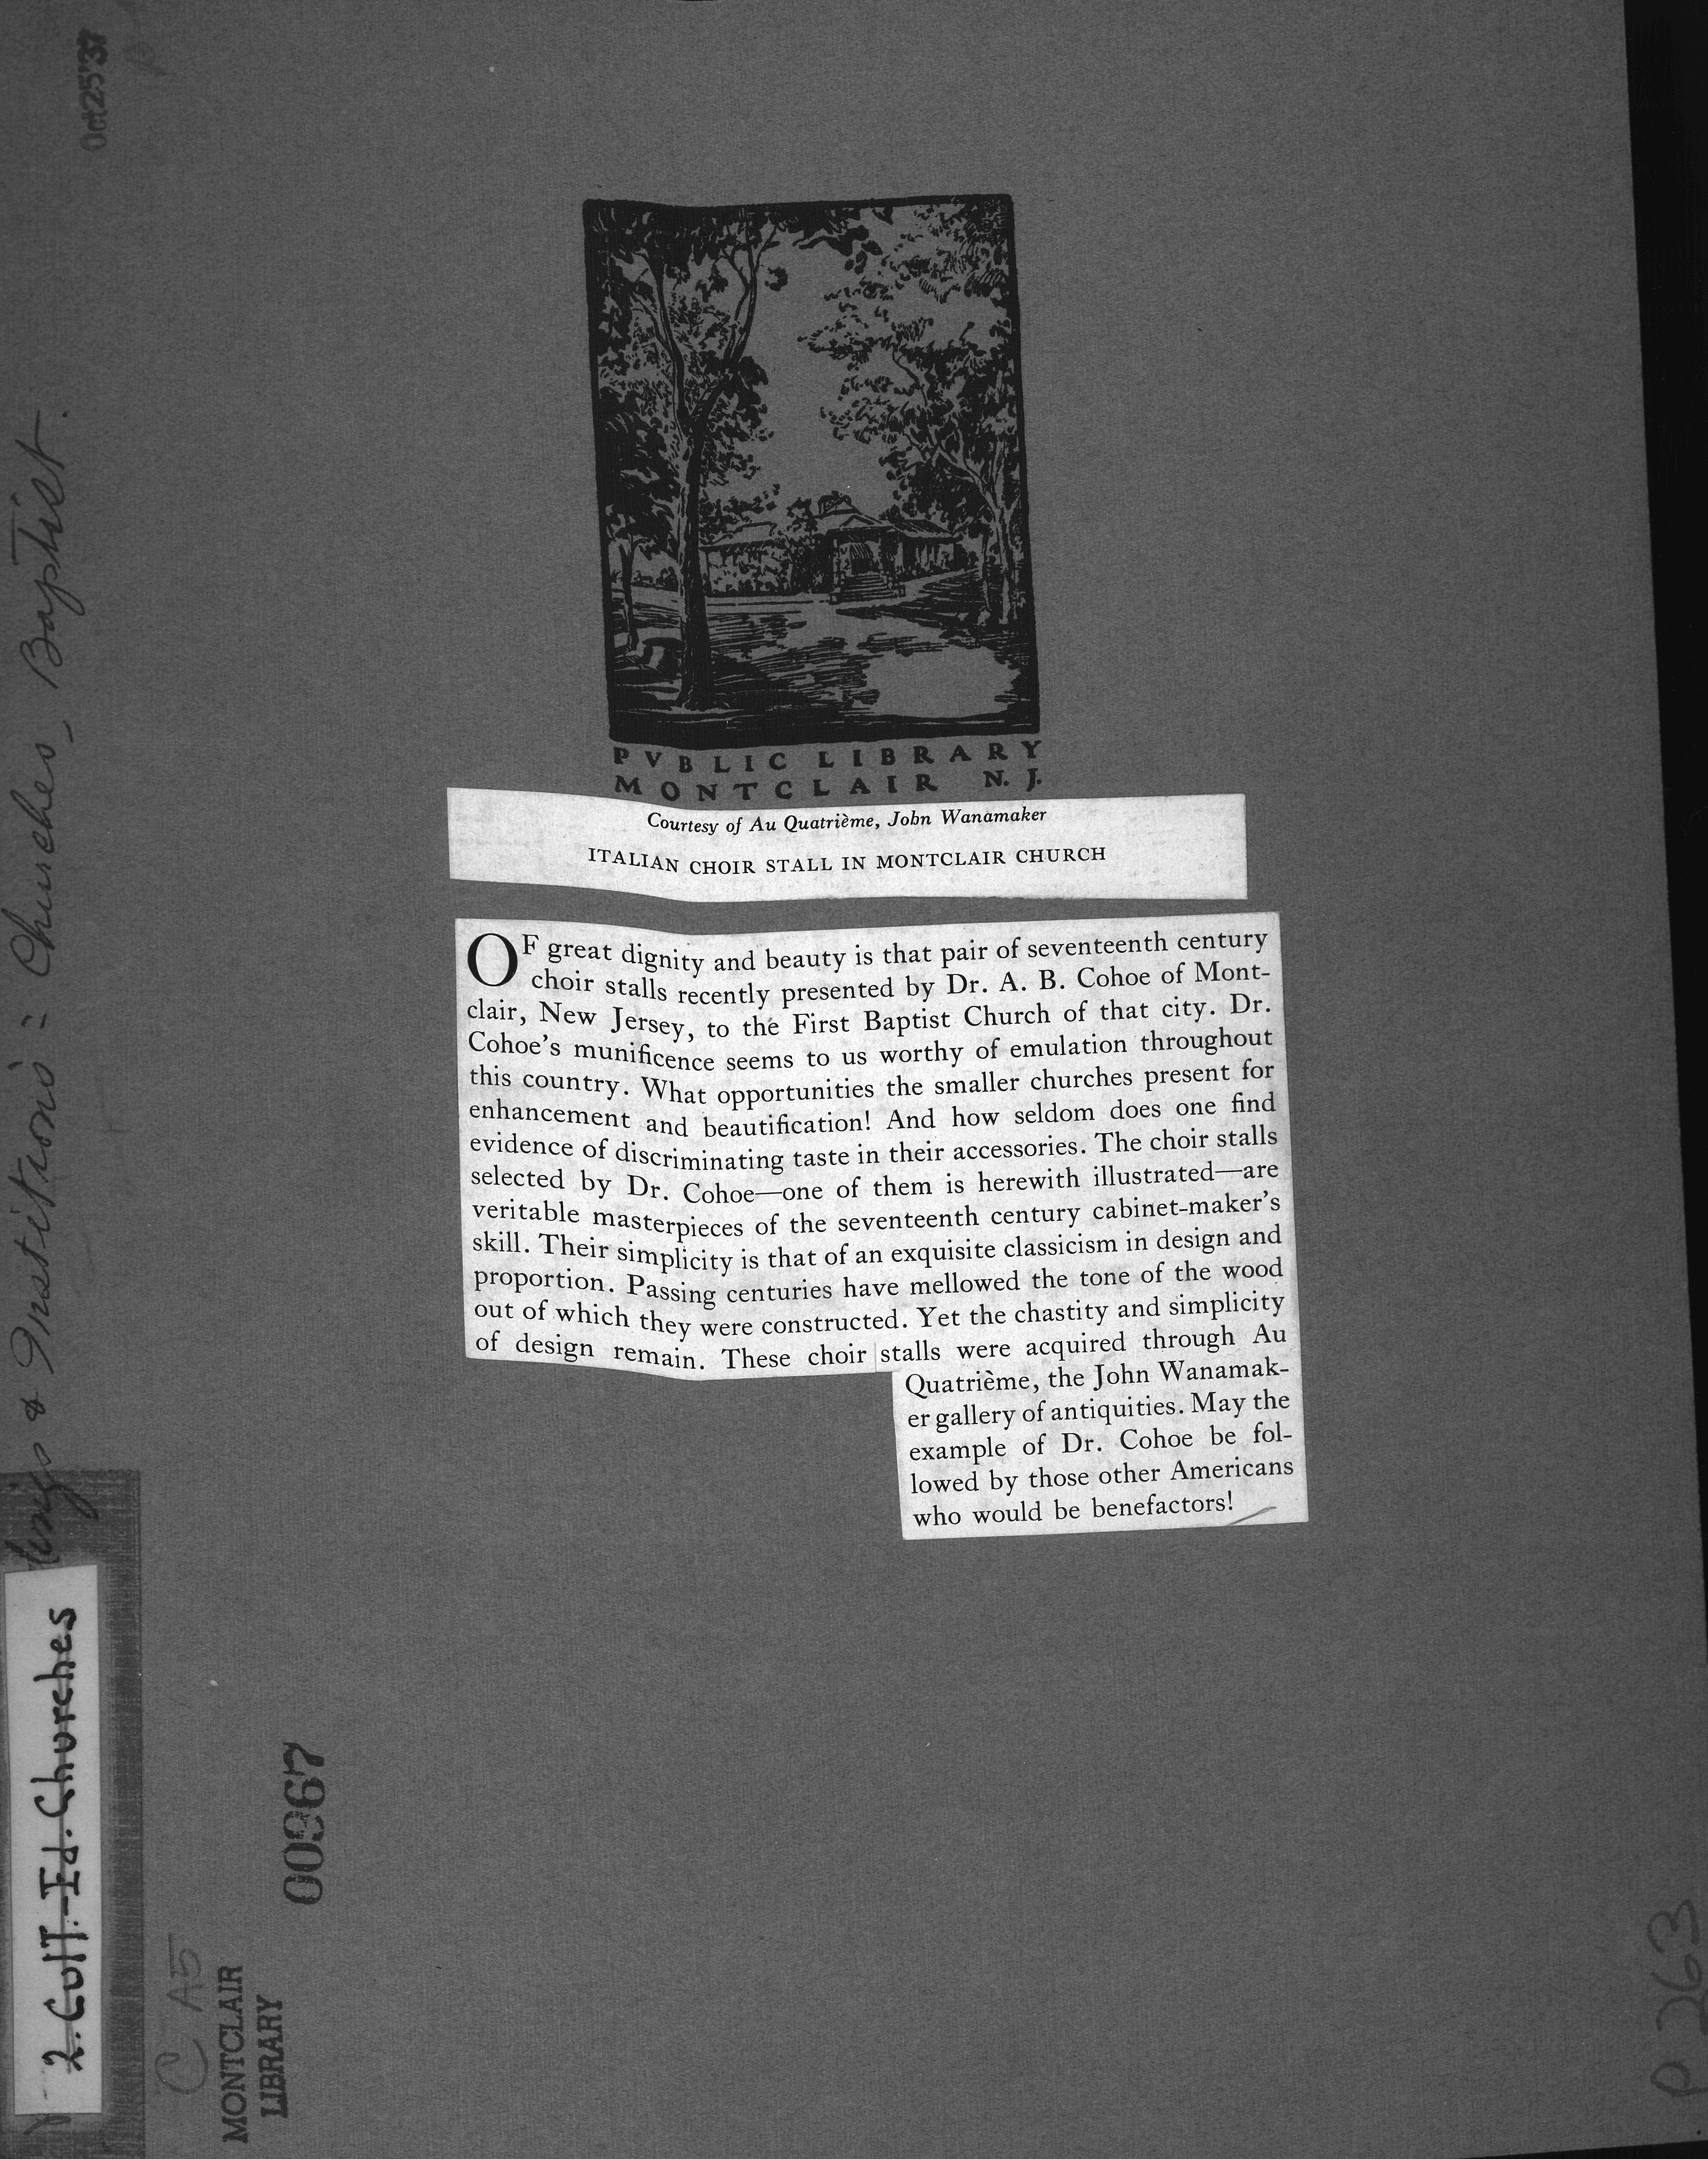 Oct 25 '37
PVBLIC LIBRARY
MONTCLAIR N. J.
Courtesy of Au Quatrième, John Wanamaker
ITALIAN CHOIR STALL IN MONTCLAIR CHURCH
OF great dignity and beauty is that pair of seventeenth century
choir stalls recently presented by Dr. A. B. Cohoe of Mont-
clair, New Jersey, to the First Baptist Church of that city. Dr.
Cohoe's munificence seems to us worthy of emulation throughout
this country. What opportunities the smaller churches present for
enhancement and beautification! And how seldom does one find
evidence of discriminating taste in their accessories. The choir stalls
selected by Dr. Cohoe—one of them is herewith illustrated—are
veritable masterpieces of the seventeenth century cabinet-maker's
skill. Their simplicity is that of an exquisite classicism in design and
proportion. Passing centuries have mellowed the tone of the wood
out of which they were constructed. Yet the chastity and simplicity
of design remain. These choir stalls were acquired through Au
Quatrième, the John Wanamak-
er gallery of antiquities. May the
example of Dr. Cohoe be fol-
lowed by those other Americans
who would be benefactors!
& Institutions: Churches - Baptist.
2. Cult.-Ed. Churches
C A5
MONTCLAIR
LIBRARY
00967
P 263